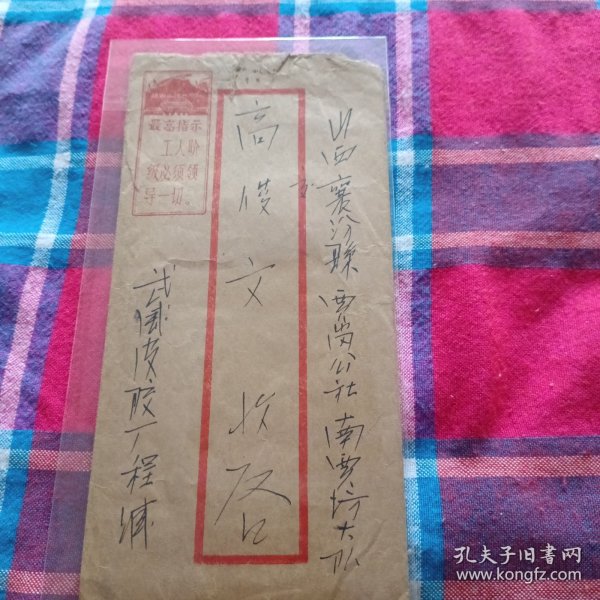 山西襄汾县西岗公社南西坊大队
高俊文 收启
最高指示
工人阶
级必须领
导一切。
武国皮胶厂程
孔夫子旧书网
www.kongfz.com